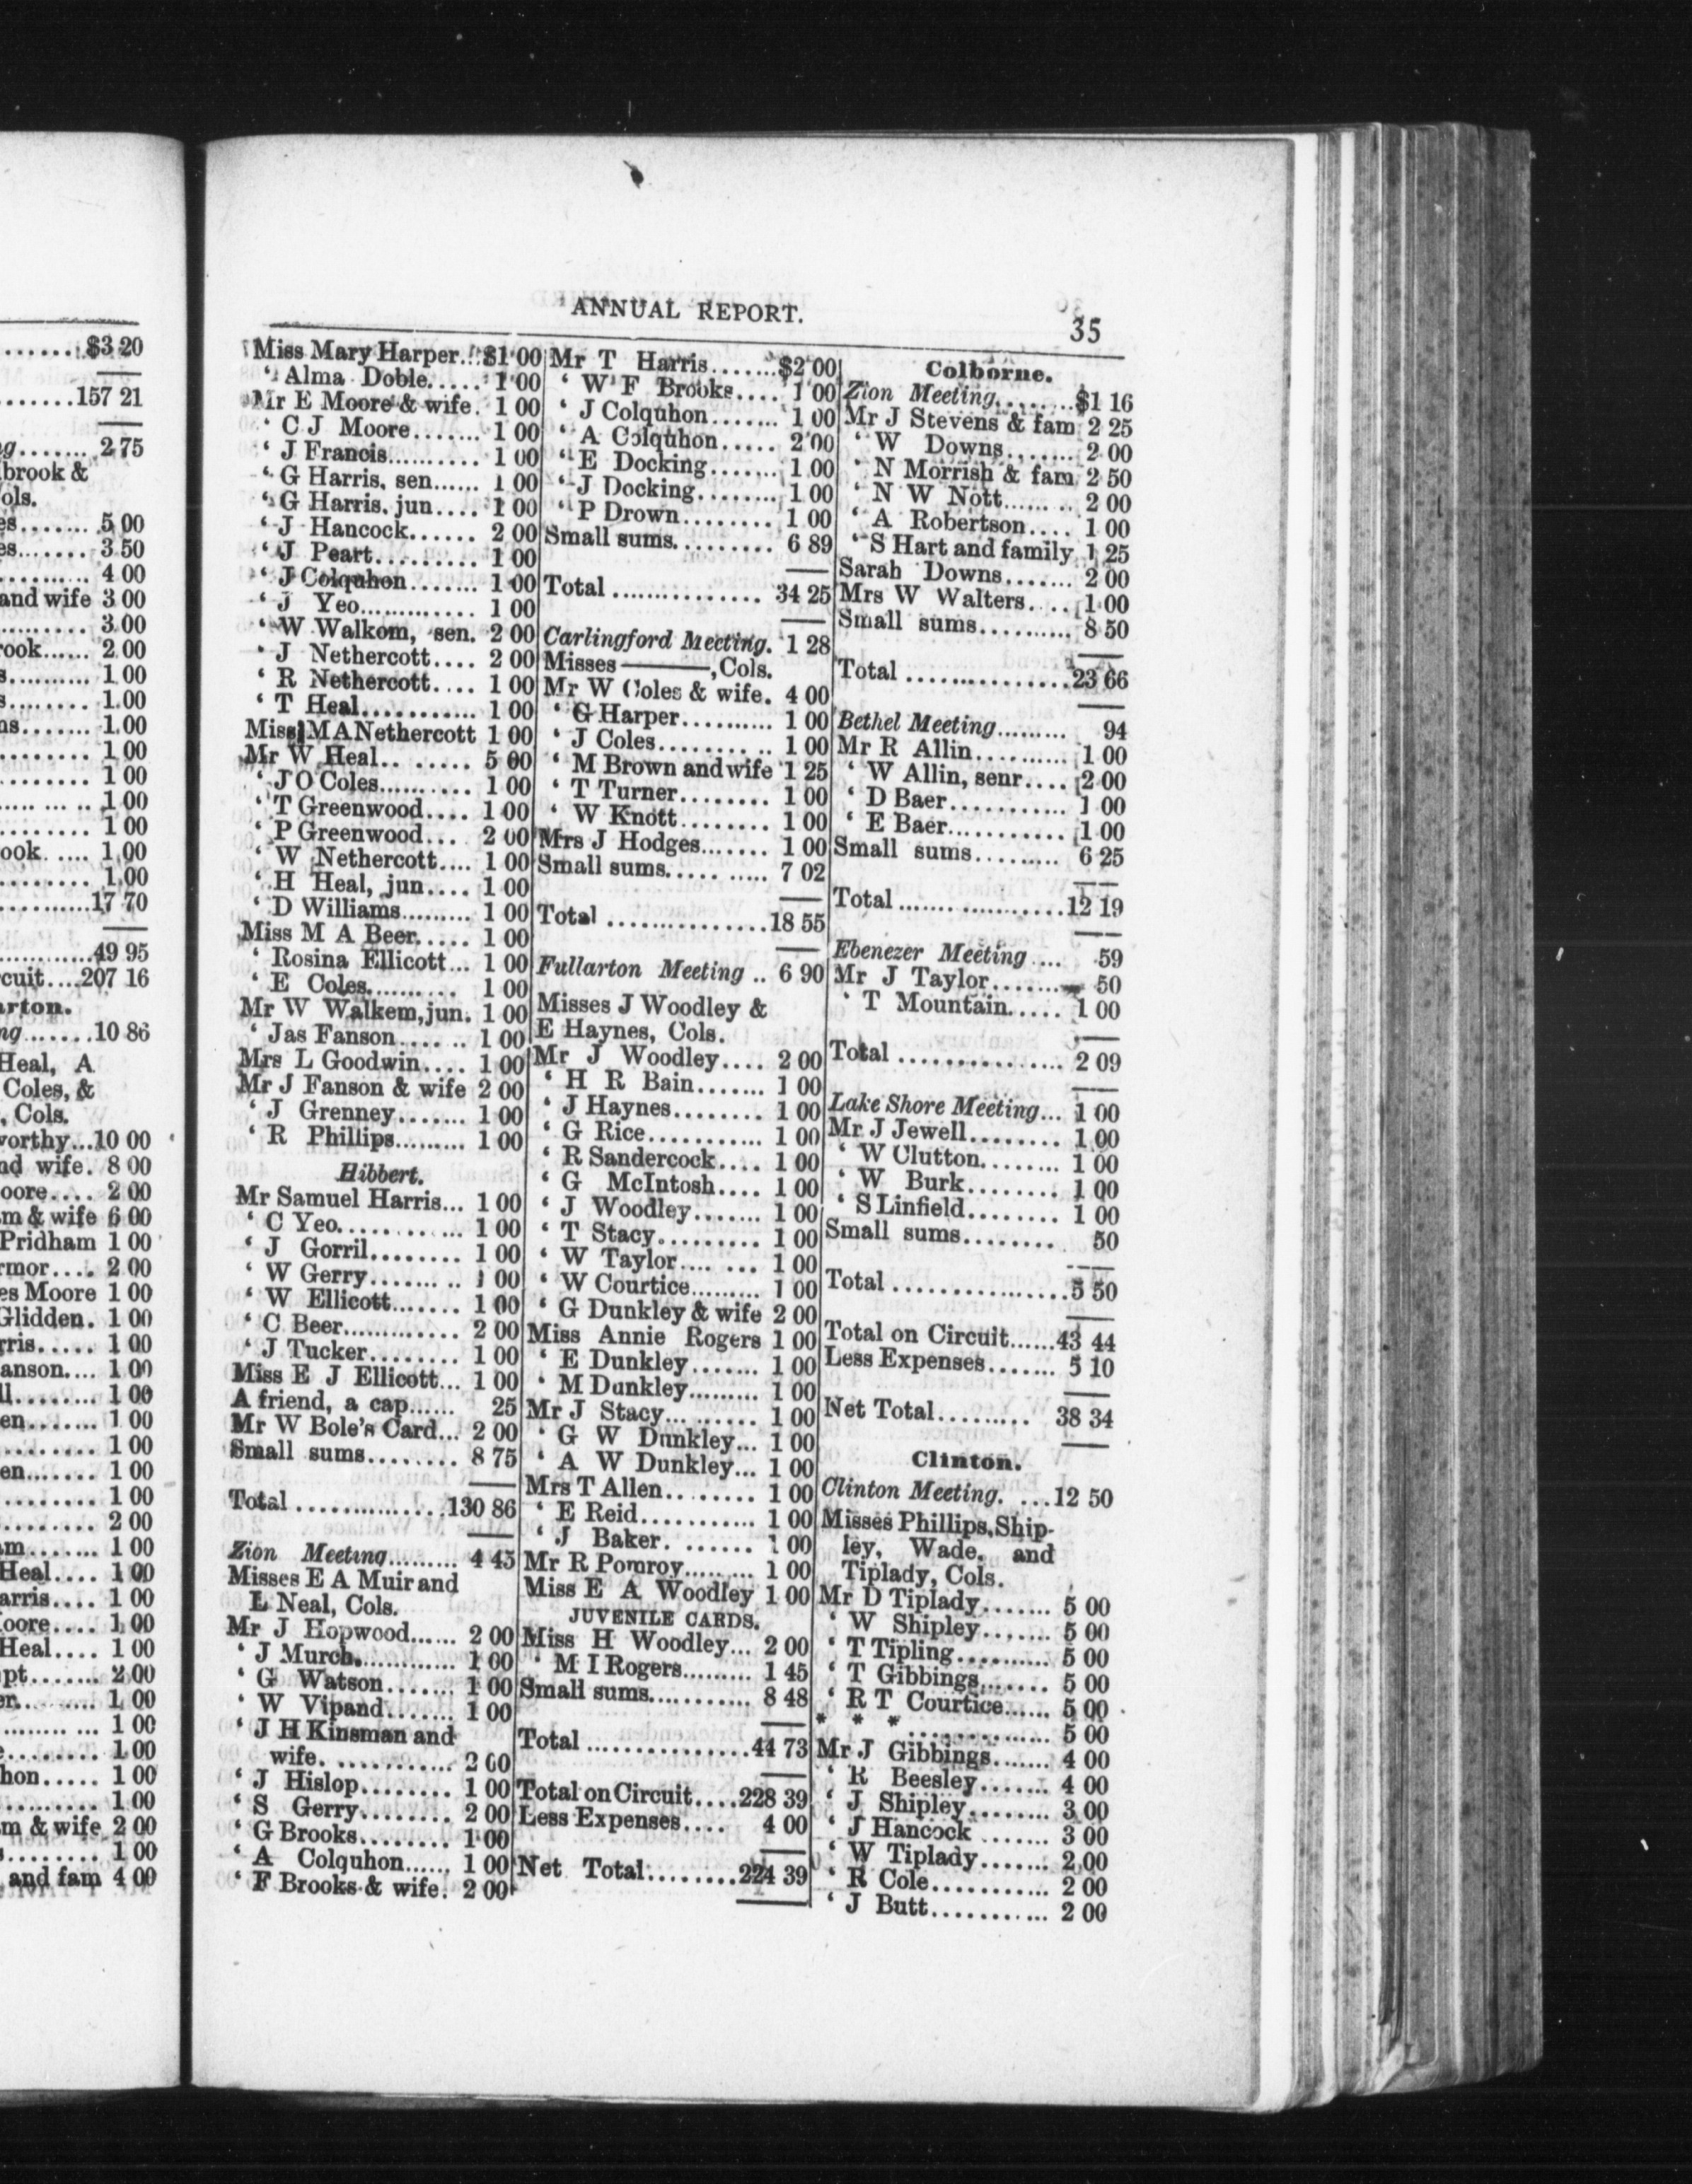 $3 20
157 21
2 75
brook &
ols.
5 00
3 50
4 00
and wife 3 00
3 00
rook...... 2 00
1 00
1 00
1 00
1 00
1 00
1 00
1 00
ook. .... 1 00
1 00
17 70
49 95
cuit....207 16
arton.
ng.......10 86
Heal, A
Coles, &
, Cols.
worthy...10 00
nd wife. 8 00
oore.... 2 00
m & wife 6 00
Pridham 1 00
rmor.... 2 00
es Moore 1 00
Glidden. 1 00
rris..... 1 00
anson.... 1 00
1 00
en....... 1 00
1 00
en....... 1 00
1 00
2 00
am....... 1 00
Heal.... 1 00
arris.... 1 00
oore.... 1 00
Heal.... 1 00
pt....... 2 00
1 00
1 00
1 00
hon..... 1 00
1 00
m & wife 2 00
1 00
and fam 4 00
ANNUAL REPORT.
35
Miss Mary Harper..$1 00
‘ Alma Doble..... 1 00
Mr E Moore & wife. 1 00
‘ C J Moore....... 1 00
‘ J Francis.......... 1 00
‘ G Harris, sen...... 1 00
‘ G Harris, jun.... 1 00
‘ J Hancock...... 2 00
‘ J Peart.......... 1 00
‘ J Colquhon....... 1 00
‘ J Yeo............. 1 00
‘ W Walkom, sen. 2 00
‘ J Nethercott.... 2 00
‘ R Nethercott.... 1 00
‘ T Heal........... 1 00
Miss M A Nethercott 1 00
Mr W Heal.. ...... 5 00
‘ J O Coles.......... 1 00
‘ T Greenwood.... 1 00
‘ P Greenwood.... 2 00
‘ W Nethercott.... 1 00
‘ H Heal, jun.... 1 00
‘ D Williams......... 1 00
Miss M A Beer..... 1 00
‘ Rosina Ellicott... 1 00
‘ E Coles.......... 1 00
Mr W Walkem, jun. 1 00
‘ Jas Fanson...... .. 1 00
Mrs L Goodwin.... 1 00
Mr J Fanson & wife 2 00
‘ J Grenney....... 1 00
‘ R Phillips......... 1 00
Hibbert.
Mr Samuel Harris... 1 00
‘ C Yeo............. 1 00
‘ J Gorril......... 1 00
‘ W Gerry....... .. 1 00
‘ W Ellicott....... 1 00
‘ C Beer............. 2 00
‘ J Tucker......... 1 00
Miss E J Ellicott... 1 00
A friend, a cap...... 25
Mr W Bole's Card... 2 00
Small sums......... 8 75
Total ...............130 86
Zion Meeting......... 4 45
Misses E A Muir and
L Neal, Cols.
Mr J Hopwood...... 2 00
‘ J Murch............. 1 00
‘ G Watson....... 1 00
‘ W Vipand....... 1 00
‘ J H Kinsman and
wife............. 2 00
‘ J Hislop......... 1 00
‘ S Gerry......... 2 00
‘ G Brooks......... 1 00
‘ A Colquhon...... 1 00
‘ F Brooks & wife. 2 00
Mr T Harris.......$2 00
‘ W F Brooks.... 1 00
‘ J Colquhon........ 1 00
‘ A Colquhon..... 2 00
‘ E Docking....... 1 00
‘ J Docking......... 1 00
‘ P Drown......... 1 00
Small sums.......... 6 89
Total ............... 34 25
Carlingford Meeting. 1 28
Misses ———, Cols.
Mr W Coles & wife. 4 00
‘ G Harper.......... 1 00
‘ J Coles........ .. 1 00
‘ M Brown and wife 1 25
‘ T Turner......... 1 00
‘ W Knott......... 1 00
Mrs J Hodges....... 1 00
Small sums..... ..... 7 02
Total ................18 55
Fullarton Meeting .. 6 90
Misses J Woodley &
E Haynes, Cols.
Mr J Woodley.... 2 00
‘ H R Bain....... 1 00
‘ J Haynes......... 1 00
‘ G Rice........... 1 00
‘ R Sandercock.... 1 00
‘ G McIntosh.... 1 00
‘ J Woodley....... 1 00
‘ T Stacy.......... 1 00
‘ W Taylor.... ... 1 00
‘ W Courtice......... 1 00
‘ G Dunkley & wife 2 00
Miss Annie Rogers 1 00
‘ E Dunkley....... 1 00
‘ M Dunkley.......... 1 00
Mr J Stacy... ....... 1 00
‘ G W Dunkley... 1 00
‘ A W Dunkley... 1 00
Mrs T Allen......... 1 00
‘ E Reid........... 1 00
‘ J Baker. ....... 1 00
Mr R Pomroy......... 1 00
Miss E A Woodley 1 00
JUVENILE CARDS.
Miss H Woodley... 2 00
‘ M I Rogers......... 1 45
Small sums........... 8 48
Total ................44 73
Total on Circuit....228 39
Less Expenses.... 4 00
Net Total.........224 39
Colborne.
Zion Meeting........$1 16
Mr J Stevens & fam 2 25
‘ W Downs....... 2 00
‘ N Morrish & fam 2 50
‘ N W Nott...... .. 2 00
‘ A Robertson.... 1 00
‘ S Hart and family 1 25
Sarah Downs....... 2 00
Mrs W Walters.... 1 00
Small sums.......... 8 50
Total .................23 66
Bethel Meeting......... 94
Mr R Allin.......... 1 00
‘ W Allin, senr.... 2 00
‘ D Baer........... 1 00
‘ E Baer............ 1 00
Small sums......... 6 25
Total .................12 19
Ebenezer Meeting .... 59
Mr J Taylor......... 50
‘ T Mountain..... 1 00
Total ................. 2 09
Lake Shore Meeting... 1 00
Mr J Jewell......... 1 00
‘ W Clutton........ 1 00
‘ W Burk......... 1 00
‘ S Linfield......... 1 00
Small sums........ 50
Total ..................5 50
Total on Circuit......43 44
Less Expenses....... 5 10
Net Total......... 38 34
Clinton.
Clinton Meeting. ...12 50
Misses Phillips, Ship-
ley, Wade, and
Tiplady, Cols.
Mr D Tiplady....... 5 00
‘ W Shipley....... 5 00
‘ T Tipling.......... 5 00
‘ T Gibbings....... 5 00
‘ R T Courtice...... 5 00
* * * .............. 5 00
Mr J Gibbings....... 4 00
‘ R Beesley....... 4 00
‘ J Shipley........ 3 00
‘ J Hancock ....... 3 00
‘ W Tiplady....... 2 00
‘ R Cole............ 2 00
‘ J Butt............ 2 00